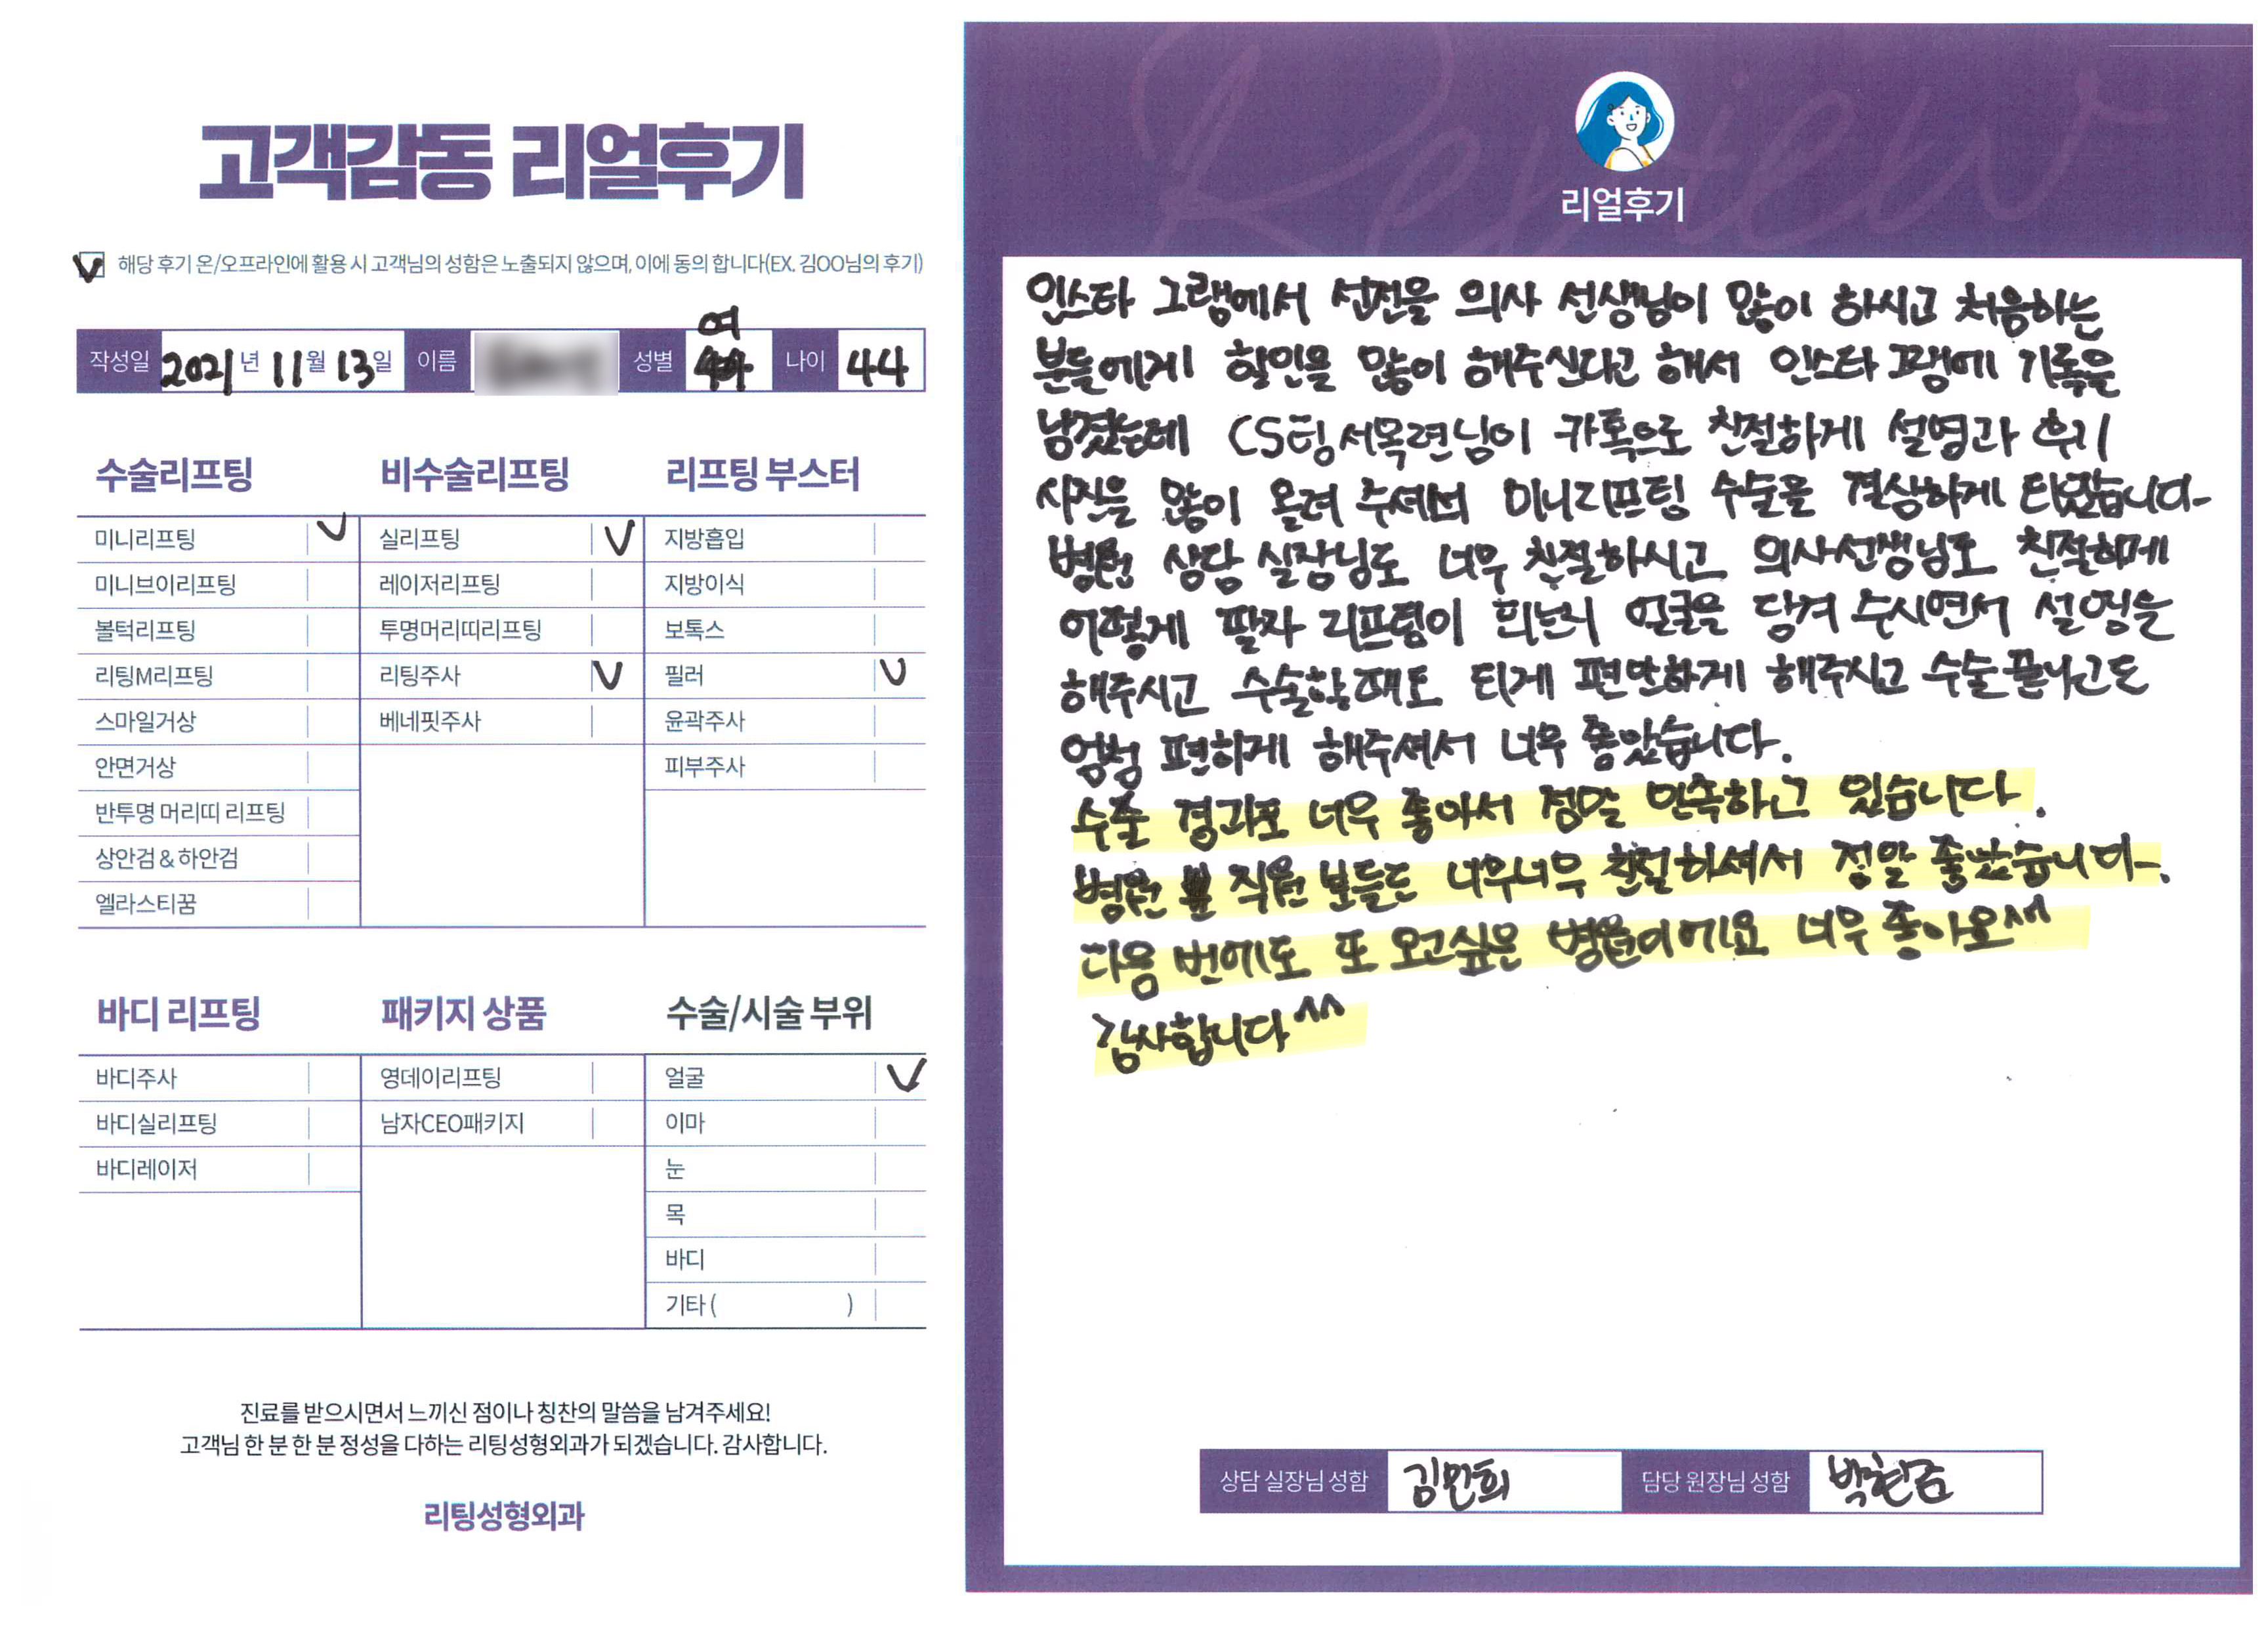 고객감동 리얼후기
해당 후기 온/오프라인에 활용 시 고객님의 성함은 노출되지 않으며, 이에 동의 합니다(EX. 김OO님의 후기)
작성일 2021년 11월 13일 이름 성별 여 나이 44
수술리프팅 비수술리프팅 리프팅 부스터
미니리프팅 V 실리프팅 V 지방흡입
미니브이리프팅 레이저리프팅 지방이식
볼턱리프팅 투명머리띠리프팅 보톡스
리팅M리프팅 리팅주사 V 필러 V
스마일거상 베네핏주사 윤곽주사
안면거상 피부주사
반투명 머리띠 리프팅
상안검&하안검
엘라스티꿈
바디 리프팅 패키지 상품 수술/시술 부위
바디주사 영데이리프팅 얼굴 V
바디실리프팅 남자CEO패키지 이마
바디레이저 눈
목
바디
기타 ( )
진료를 받으시면서 느끼신 점이나 칭찬의 말씀을 남겨주세요!
고객님 한 분 한 분 정성을 다하는 리팅성형외과가 되겠습니다. 감사합니다.
리팅성형외과
Review
리얼후기
인스타 그램에서 선전을 의사 선생님이 많이 하시고 처음하는
분들에게 할인을 많이 해주신다고 해서 인스타 그램에 기록을
남겼는데 CS팀 서목련님이 카톡으로 친절하게 설명과 후기
사진을 많이 올려 주셔서 미니리프팅 수술을 결심하게 되었습니다.
병원 상담 실장님도 너무 친절하시고 의사선생님도 친절하게
어떻게 팔자 리프팅이 되는지 얼굴을 당겨 주시면서 설명을
해주시고 수술할때도 되게 편안하게 해주시고 수술끝나고도
엄청 편하게 해주셔서 너무 좋았습니다.
수술 경과도 너무 좋아서 정말 만족하고 있습니다.
병원 직원 분들도 너무너무 친절하셔서 정말 좋았습니다.
다음 번에도 또 오고싶은 병원이에요 너무 좋아요^^
감사합니다^^
상담 실장님 성함 김민희 담당 원장님 성함